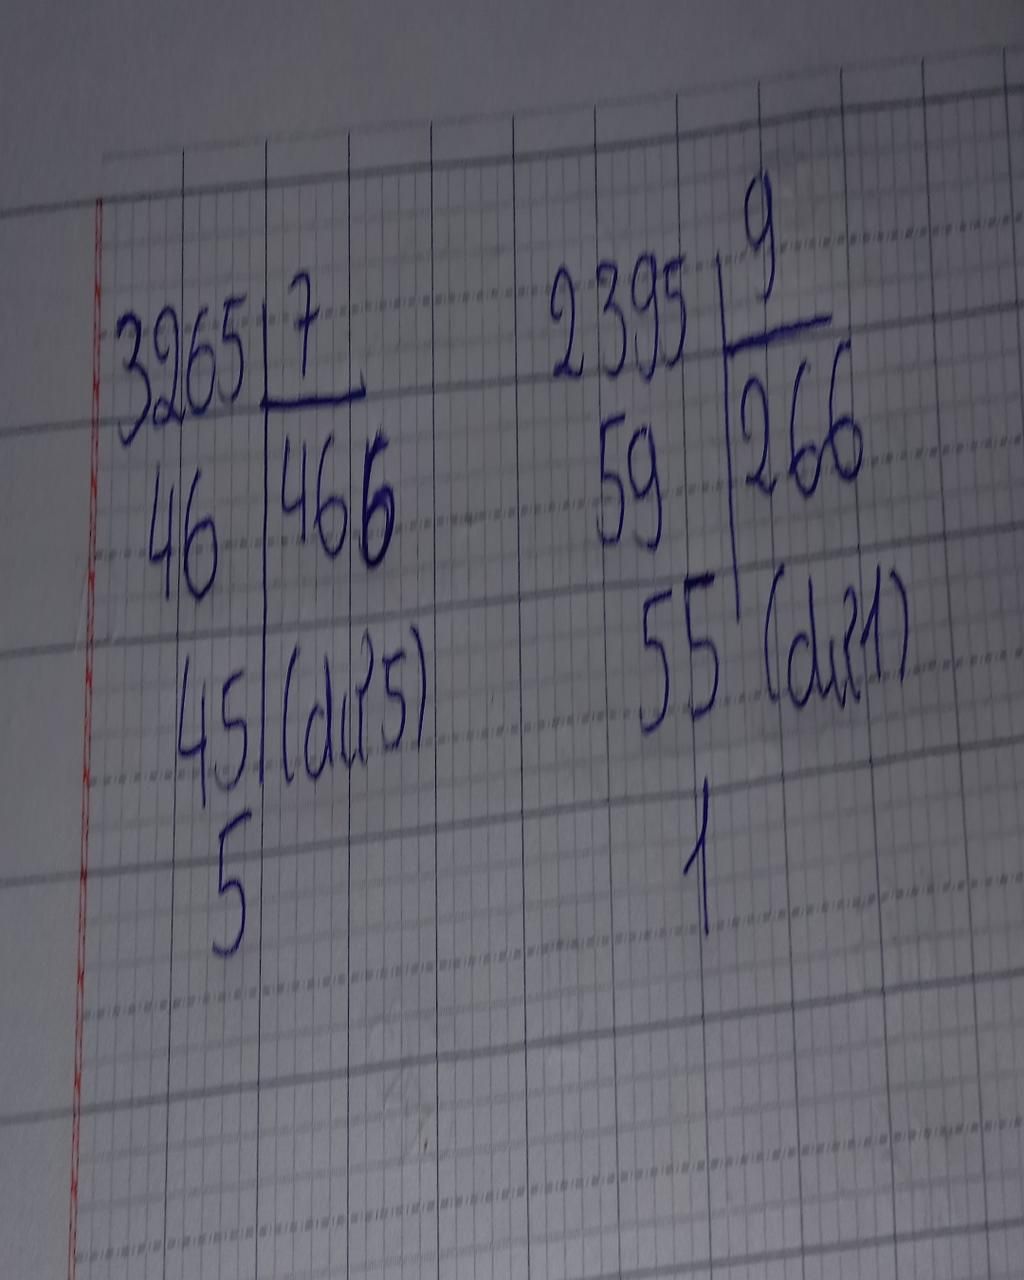 3265 7
46 466
45 (dư 5)
5
2395 9
59 266
55 (dư 1)
1